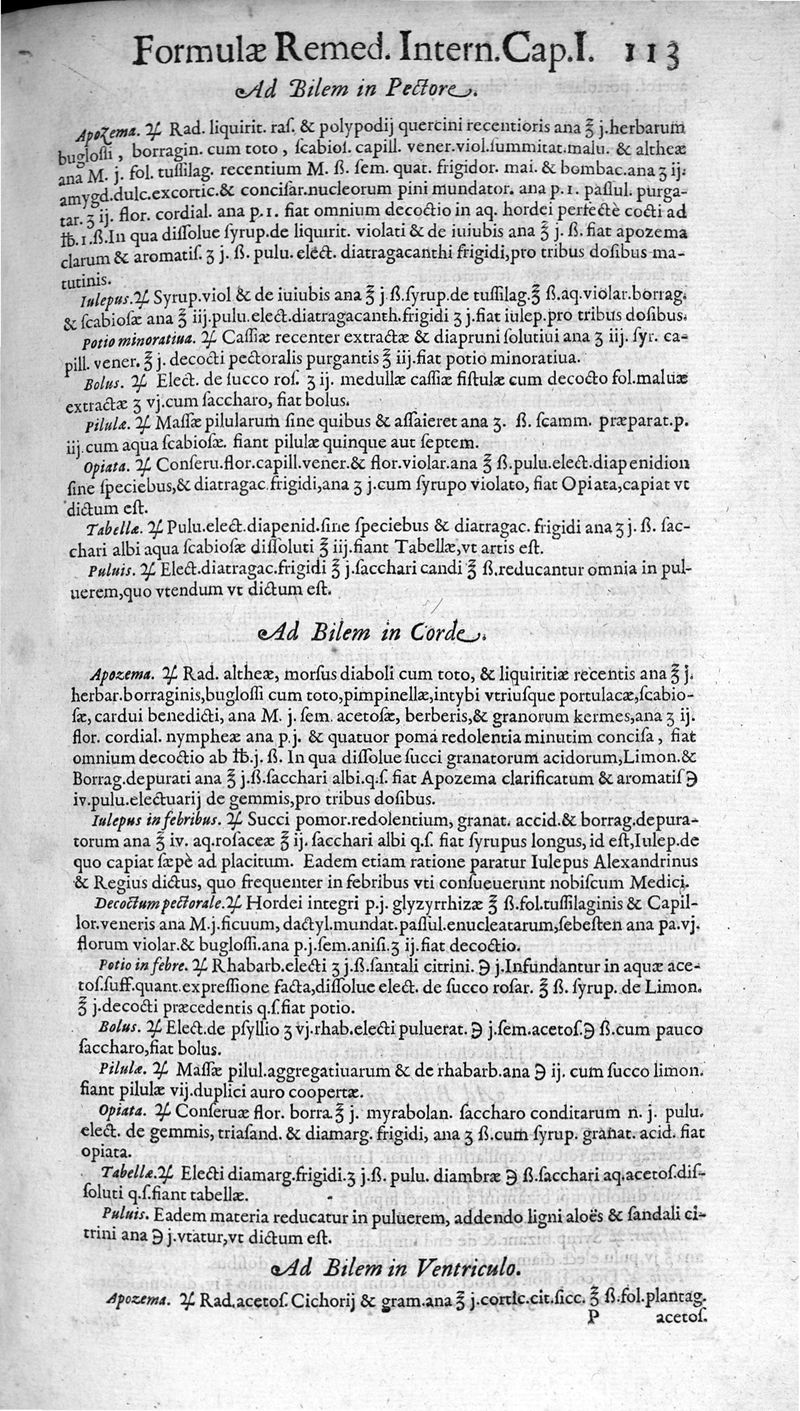 Formulæ Remed. Intern. Cap. I. 113
Ad Bilem in Pectore.
Apozema. ♃ Rad. liquirit. raſ. & polypodij quercini recentioris ana ℥ j. herbarum
bugloſſi, borragin. cum toto, ſcabioſ. capill. vener. viol. ſummitat. malu. & altheæ
ana M. j. fol. tuſſilag. recentium M. ß. ſem. quat. frigidor. mai. & bombac. ana ʒ ij.
amygd. dulc. excortic. & conciſar. nucleorum pini mundator. ana p. 1. paſſul. purga-
tar. ʒ ij. flor. cordial. ana p. 1. fiat omnium decoctio in aq. hordei perfectè cocti ad
℔. 1. ß. In qua diſſolue ſyrup. de liquirit. violati & de iuiubis ana ℥ j. ß. fiat apozema
clarum & aromatiſ. ʒ j. ß. pulu. elect. diatragacanthi frigidi, pro tribus doſibus ma-
tutinis.
Iulepus. ♃ Syrup. viol & de iuiubis ana ℥ j. ß. ſyrup. de tuſſilag. ℥ ß. aq. violar. borrag.
& ſcabioſæ ana ℥ iij. pulu. elect. diatragacanth. frigidi ʒ j. fiat iulep. pro tribus doſibus.
Potio minoratiua. ♃ Caſſiæ recenter extractæ & diapruni ſolutiui ana ʒ iij. ſyr. ca-
pill. vener. ℥ j. decocti pectoralis purgantis ℥ iij. fiat potio minoratiua.
Bolus. ♃ Elect. de ſucco roſ. ʒ ij. medullæ caſſiæ fiſtulæ cum decocto fol. maluæ
extractæ ʒ vj. cum ſaccharo, fiat bolus.
Pilulæ. ♃ Maſſæ pilularum ſine quibus & aſſaieret ana ʒ. ß. ſcamm. præparat. p.
iij. cum aqua ſcabioſæ. fiant pilulæ quinque aut ſeptem.
Opiata. ♃ Conſeru. flor. capill. vener. & flor. violar. ana ℥ ß. pulu. elect. diapenidion
ſine ſpeciebus, & diatragac. frigidi, ana ʒ j. cum ſyrupo violato, fiat Opiata, capiat vt
dictum eſt.
Tabellæ. ♃ Pulu. elect. diapenid. ſine ſpeciebus & diatragac. frigidi ana ʒ j. ß. ſac-
chari albi aqua ſcabioſæ diſſoluti ℥ iij. fiant Tabellæ, vt artis eſt.
Puluis. ♃ Elect. diatragac. frigidi ℥ j. ſacchari candi ℥ ß. reducantur omnia in pul-
uerem, quo vtendum vt dictum eſt.
Ad Bilem in Corde.
Apozema. ♃ Rad. altheæ, morſus diaboli cum toto, & liquiritiæ recentis ana ℥ j.
herbar. borraginis, bugloſſi cum toto, pimpinellæ, intybi vtriuſque portulacæ, ſcabio-
ſæ, cardui benedicti, ana M. j. ſem. acetoſæ, berberis, & granorum kermes, ana ʒ ij.
flor. cordial. nympheæ ana p. j. & quatuor poma redolentia minutim conciſa, fiat
omnium decoctio ab ℔. j. ß. In qua diſſolue ſucci granatorum acidorum, Limon. &
Borrag. depurati ana ℥ j. ß. ſacchari albi. q. ſ. fiat Apozema clarificatum & aromatiſ ℈
iv. pulu. electuarij de gemmis, pro tribus doſibus.
Iulepus in febribus. ♃ Succi pomor. redolentium, granat. accid. & borrag. depura-
torum ana ℥ iv. aq. roſaceæ ℥ ij. ſacchari albi q. ſ. fiat ſyrupus longus, id eſt, Iulep. de
quo capiat ſæpè ad placitum. Eadem etiam ratione paratur Iulepus Alexandrinus
& Regius dictus, quo frequenter in febribus vti conſueuerunt nobiſcum Medici.
Decoctum pectorale. ♃ Hordei integri p. j. glyzyrrhizæ ℥ ß. fol. tuſſilaginis & Capil-
lor. veneris ana M. j. ficuum, dactyl. mundat. paſſul. enucleatarum, ſebeſten ana pa. vj.
florum violar. & bugloſſi. ana p. j. ſem. aniſi. ʒ ij. fiat decoctio.
Potio in febre. ♃ Rhabarb. electi ʒ j. ß. ſantali citrini. ℈ j. Infundantur in aquæ ace-
toſ. ſuff. quant. expreſſione facta, diſſolue elect. de ſucco roſar. ℥ ß. ſyrup. de Limon.
℥ j. decocti præcedentis q. ſ. fiat potio.
Bolus. ♃ Elect. de pſyllio ʒ vj. rhab. electi puluerat. ℈ j. ſem. acetoſ. ℈ ß. cum pauco
ſaccharo, fiat bolus.
Pilulæ. ♃ Maſſæ pilul. aggregatiuarum & de rhabarb. ana ℈ ij. cum ſucco limon.
fiant pilulæ vij. duplici auro coopertæ.
Opiata. ♃ Conſeruæ flor. borra. ℥ j. myrabolan. ſaccharo conditarum n. j. pulu.
elect. de gemmis, triaſand. & diamarg. frigidi, ana ʒ ß. cum ſyrup. granat. acid. fiat
opiata.
Tabellæ. ♃ Electi diamarg. frigidi. ʒ j. ß. pulu. diambræ ℈ ß. ſacchari aq. acetoſ. diſ-
ſoluti q. ſ. fiant tabellæ.
Puluis. Eadem materia reducatur in puluerem, addendo ligni aloës & ſandali ci-
trini ana ℈ j. vtatur, vt dictum eſt.
Ad Bilem in Ventriculo.
Apozema. ♃ Rad. acetoſ. Cichorij & gram. ana ℥ j. cortic. cit. ſicc. ℥ ß. fol. plantag.
P acetoſ.